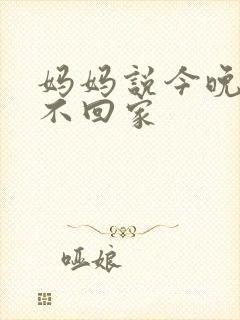 妈妈説今晚
不回家
哑娘